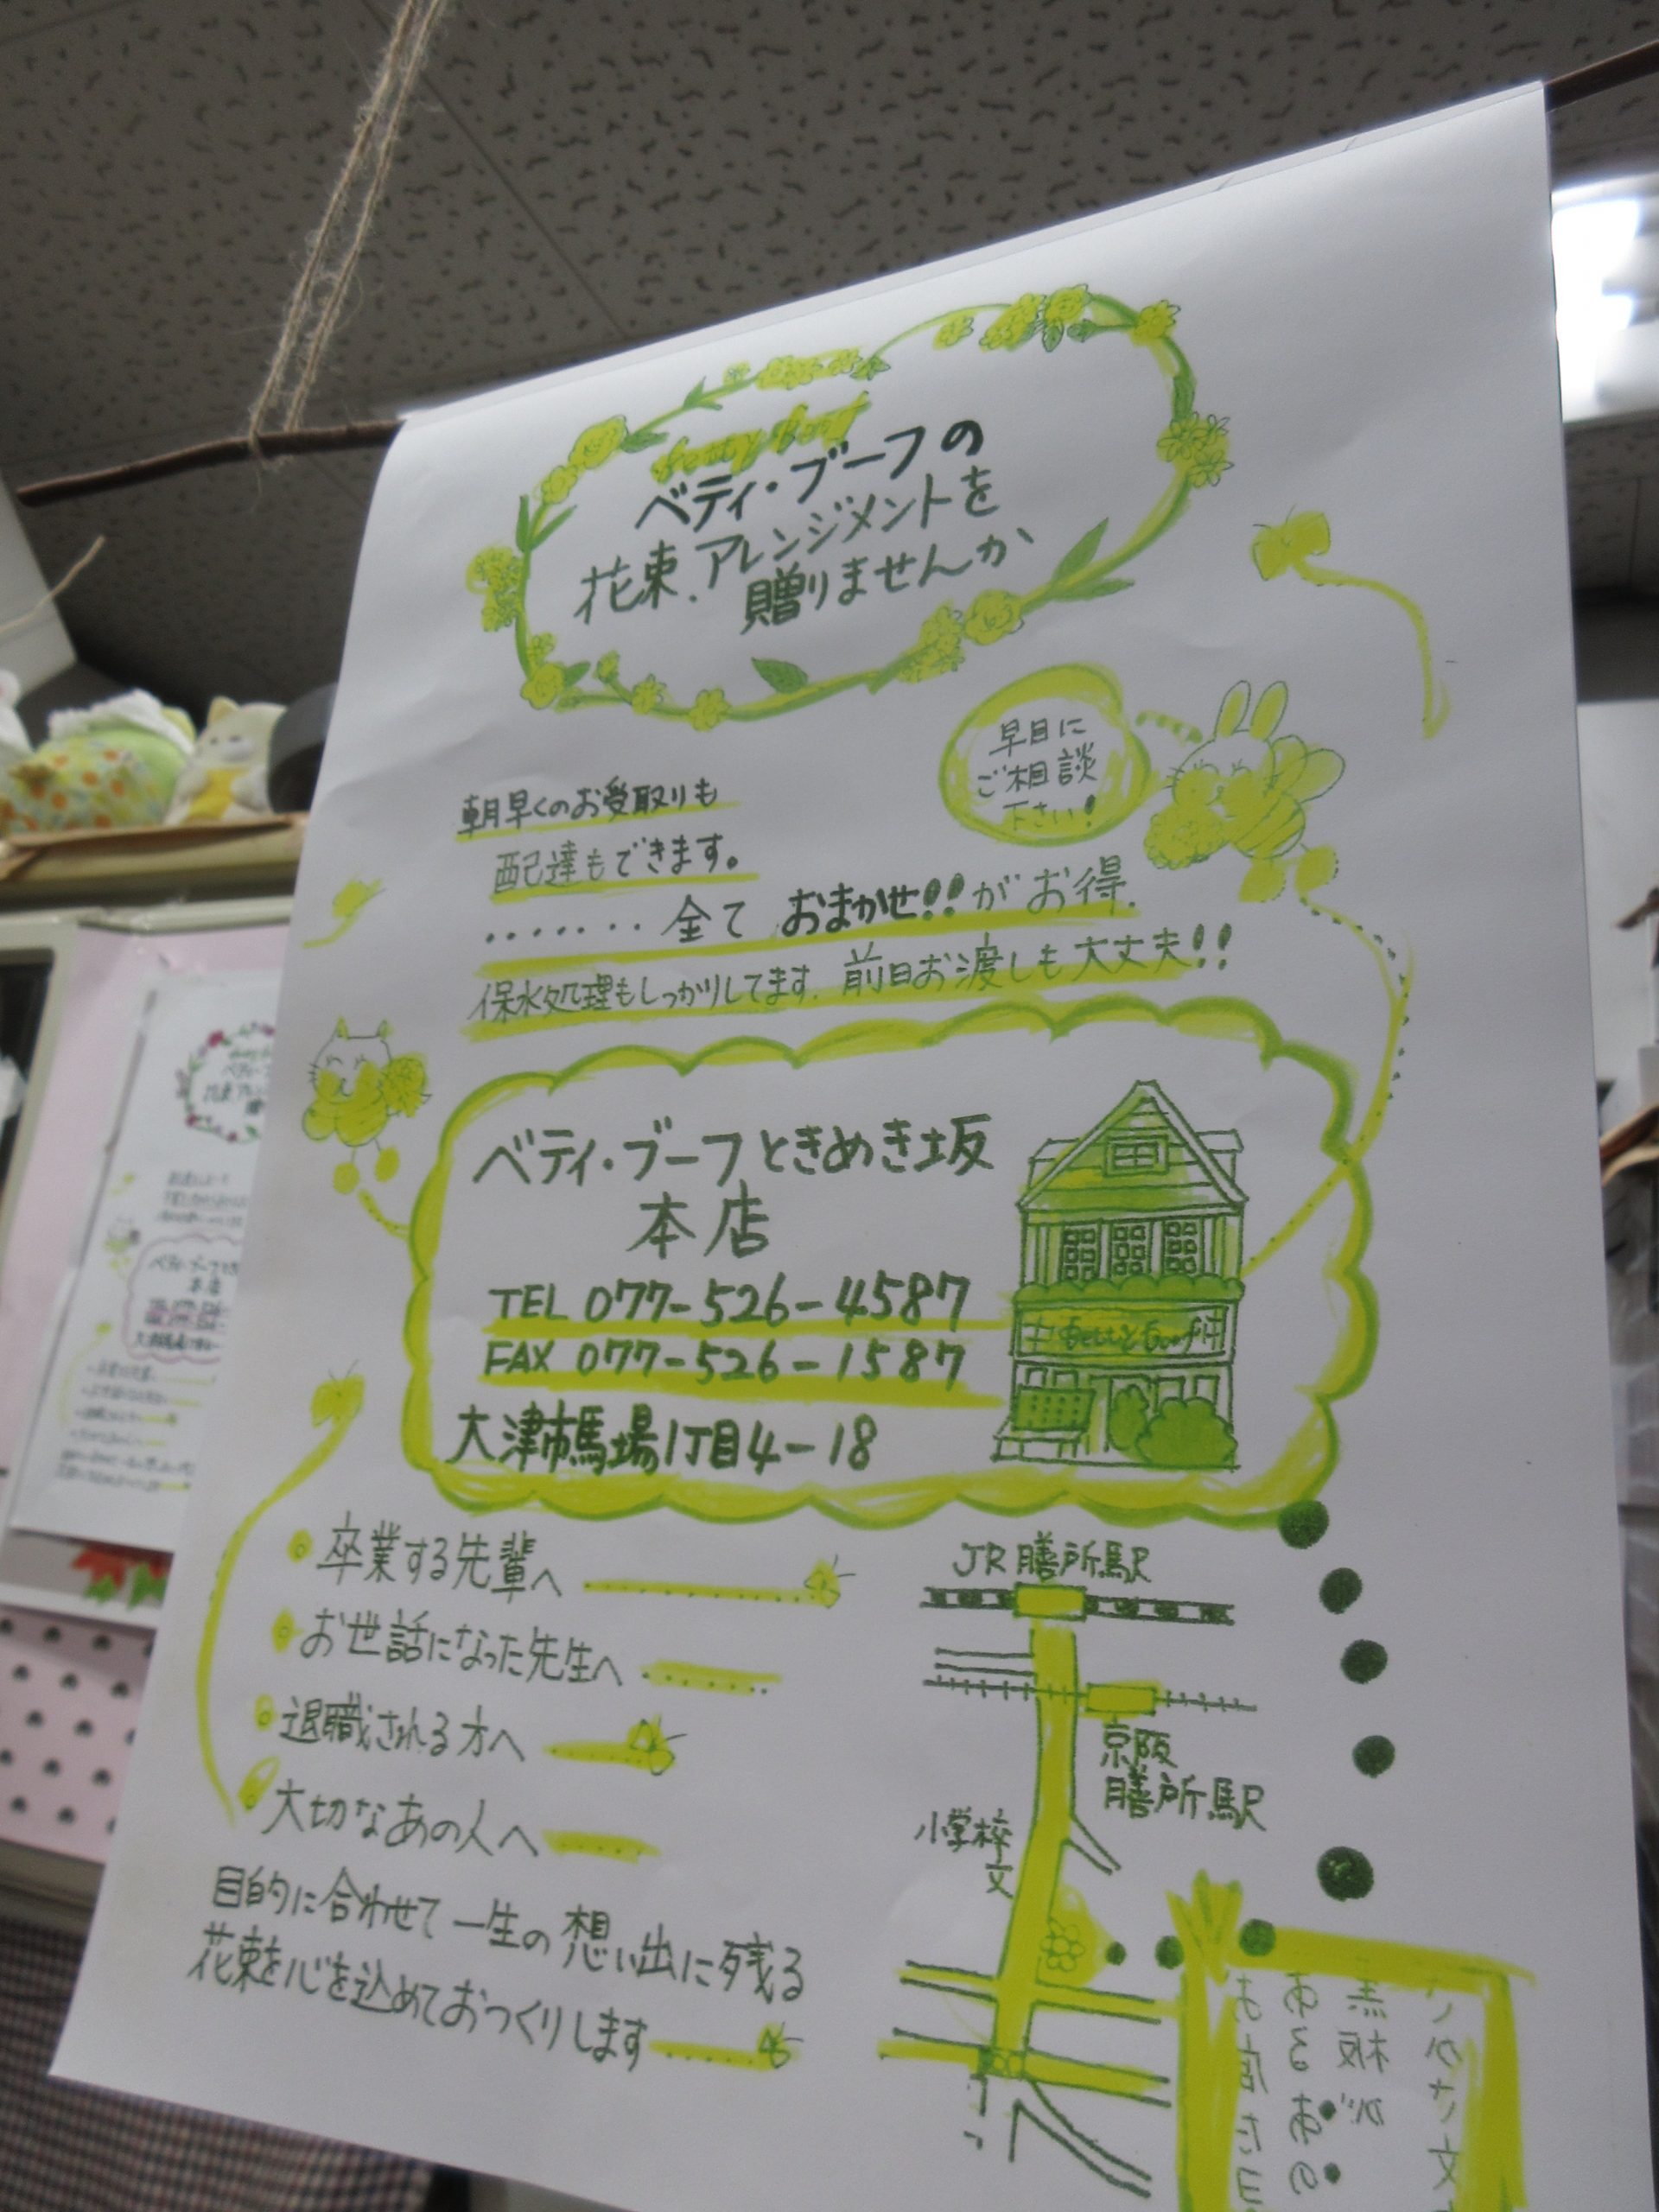 ベティ・ブーフの
花束.アレンジメントを
贈りませんか
早目に
ご相談
下さい!
朝早くのお受取りも
配達もできます。
・・・・・・・全て おまかせ!!が お得.
保水処理もしっかりしてます.前日お渡しも大丈夫!!
ベティ・ブーフときめき坂
本店
TEL 077-526-4587
FAX 077-526-1587
大津市馬場1丁目4-18
卒業する先輩へ
お世話になった先生へ
退職される方へ
大切なあの人へ
目的に合わせて一生の想い出に残る
花束を心を込めておつくりします
JR膳所駅
京阪
膳所駅
小学校
文
黒板が
あるあの
お店だヨ